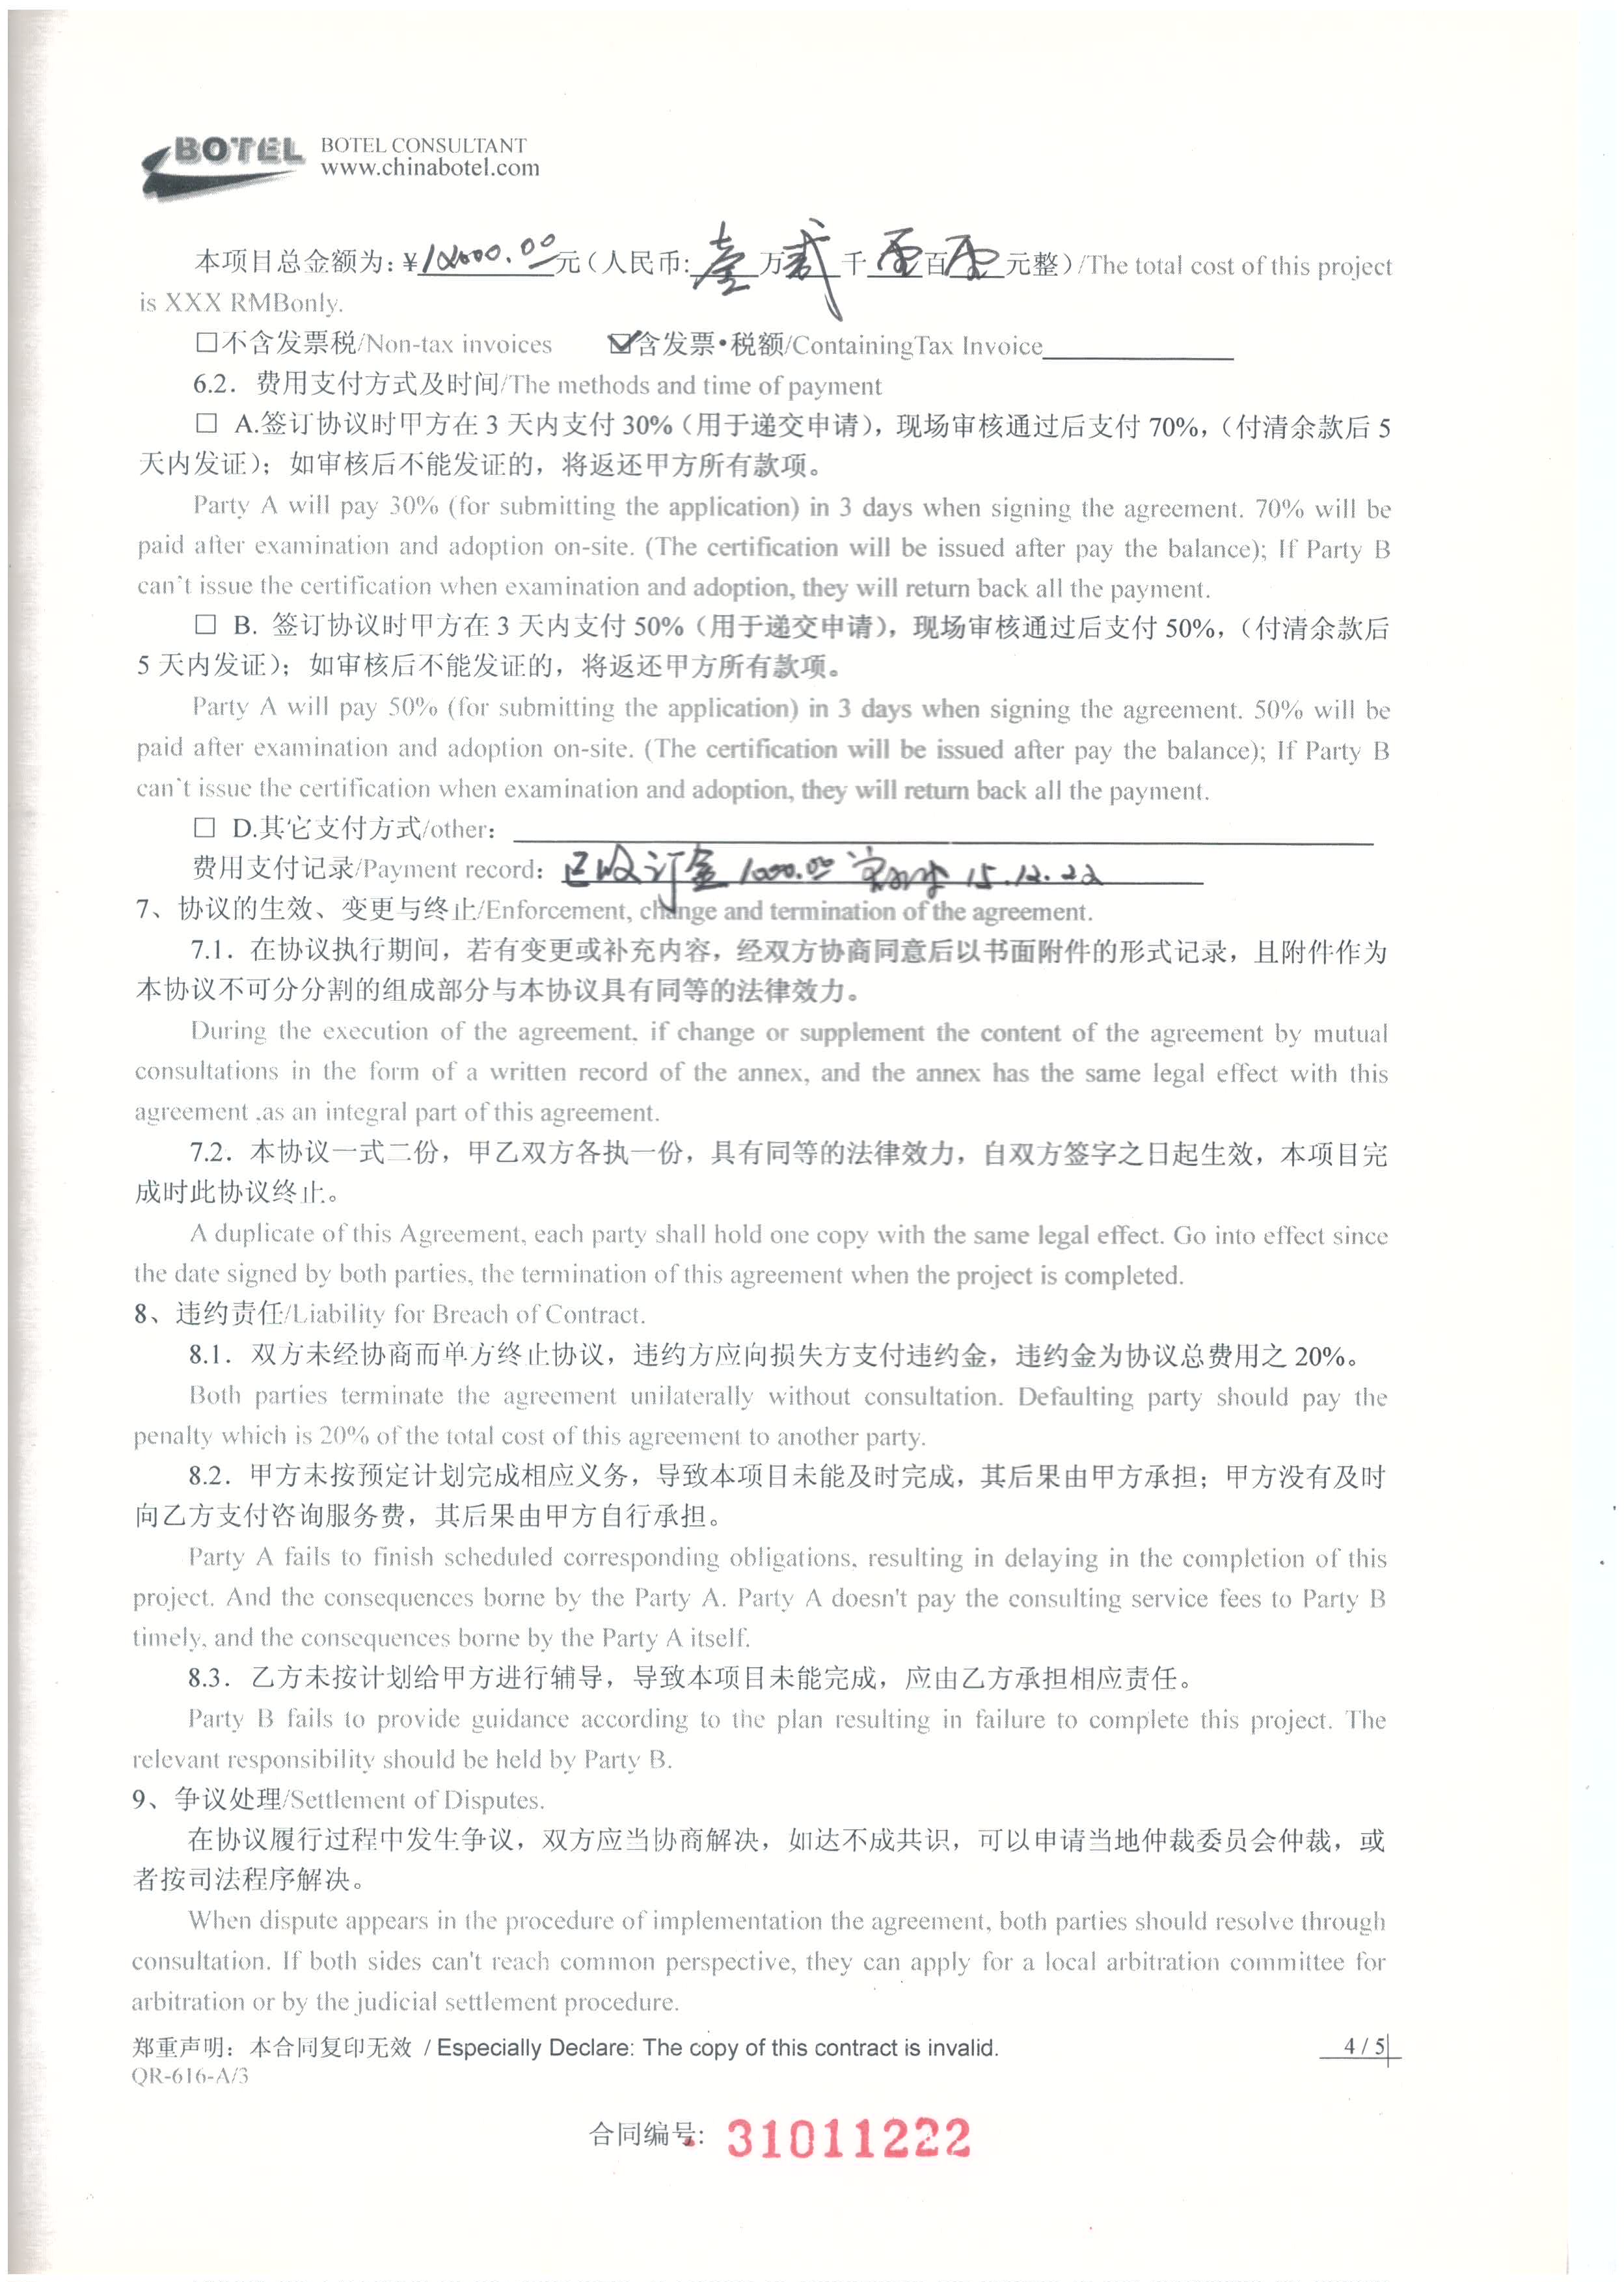 BOTEL BOTEL CONSULTANT
www.chinabotel.com
本项目总金额为:¥12000.00元(人民币:壹万贰千零百零元整)/The total cost of this project
is XXX RMBonly.
□不含发票税/Non-tax invoices ☑含发票•税额/ContainingTax Invoice
6.2. 费用支付方式及时间/The methods and time of payment
□ A.签订协议时甲方在 3 天内支付 30%（用于递交申请），现场审核通过后支付 70%，（付清余款后 5
天内发证）；如审核后不能发证的，将返还甲方所有款项。
Party A will pay 30% (for submitting the application) in 3 days when signing the agreement. 70% will be
paid after examination and adoption on-site. (The certification will be issued after pay the balance); If Party B
can't issue the certification when examination and adoption, they will return back all the payment.
□ B. 签订协议时甲方在 3 天内支付 50%（用于递交申请），现场审核通过后支付 50%，（付清余款后
5 天内发证）；如审核后不能发证的，将返还甲方所有款项。
Party A will pay 50% (for submitting the application) in 3 days when signing the agreement. 50% will be
paid after examination and adoption on-site. (The certification will be issued after pay the balance); If Party B
can't issue the certification when examination and adoption, they will return back all the payment.
□ D.其它支付方式/other:
费用支付记录/Payment record: 已收订金 1000.00 15.12.22
7、协议的生效、变更与终止/Enforcement, change and termination of the agreement.
7.1. 在协议执行期间，若有变更或补充内容，经双方协商同意后以书面附件的形式记录，且附件作为
本协议不可分分割的组成部分与本协议具有同等的法律效力。
During the execution of the agreement, if change or supplement the content of the agreement by mutual
consultations in the form of a written record of the annex, and the annex has the same legal effect with this
agreement .as an integral part of this agreement.
7.2. 本协议一式二份，甲乙双方各执一份，具有同等的法律效力，自双方签字之日起生效，本项目完
成时此协议终止。
A duplicate of this Agreement, each party shall hold one copy with the same legal effect. Go into effect since
the date signed by both parties, the termination of this agreement when the project is completed.
8、违约责任/Liability for Breach of Contract.
8.1. 双方未经协商而单方终止协议，违约方应向损失方支付违约金，违约金为协议总费用之 20%。
Both parties terminate the agreement unilaterally without consultation. Defaulting party should pay the
penalty which is 20% of the total cost of this agreement to another party.
8.2. 甲方未按预定计划完成相应义务，导致本项目未能及时完成，其后果由甲方承担；甲方没有及时
向乙方支付咨询服务费，其后果由甲方自行承担。
Party A fails to finish scheduled corresponding obligations, resulting in delaying in the completion of this
project. And the consequences borne by the Party A. Party A doesn't pay the consulting service fees to Party B
timely, and the consequences borne by the Party A itself.
8.3. 乙方未按计划给甲方进行辅导，导致本项目未能完成，应由乙方承担相应责任。
Party B fails to provide guidance according to the plan resulting in failure to complete this project. The
relevant responsibility should be held by Party B.
9、争议处理/Settlement of Disputes.
在协议履行过程中发生争议，双方应当协商解决，如达不成共识，可以申请当地仲裁委员会仲裁，或
者按司法程序解决。
When dispute appears in the procedure of implementation the agreement, both parties should resolve through
consultation. If both sides can't reach common perspective, they can apply for a local arbitration committee for
arbitration or by the judicial settlement procedure.
郑重声明：本合同复印无效 / Especially Declare: The copy of this contract is invalid. 4 / 5
QR-616-A/3
合同编号: 31011222